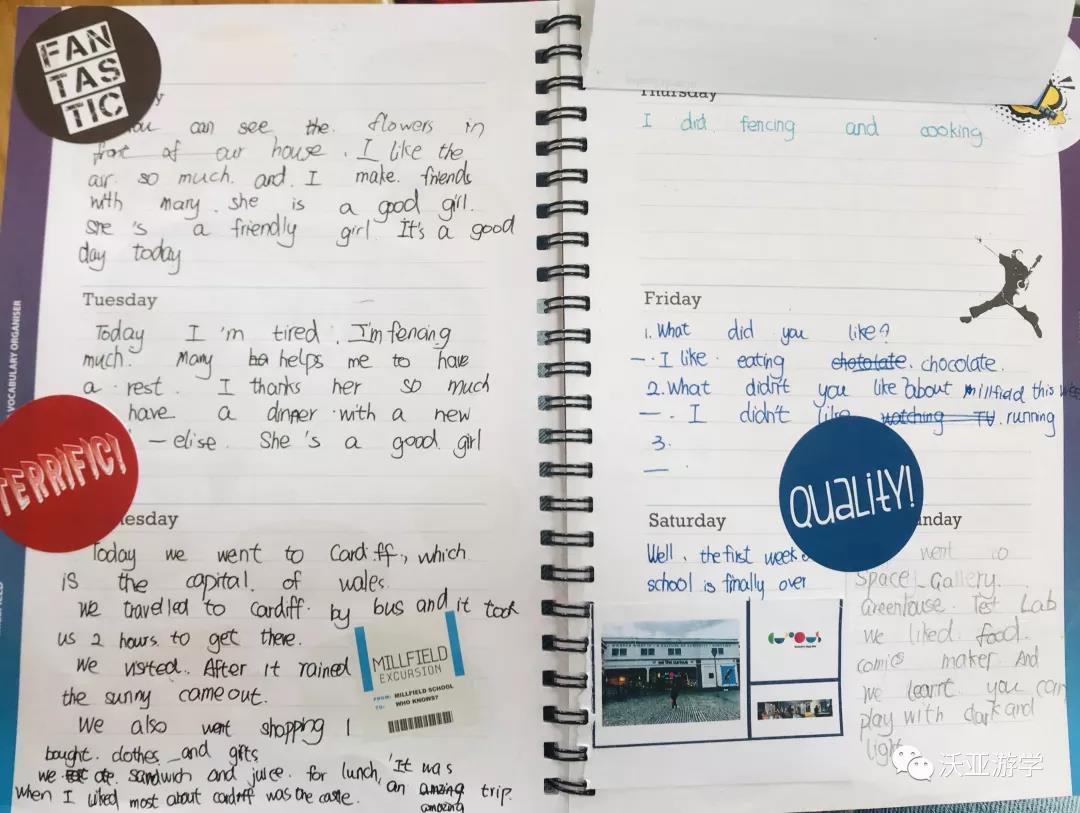 FAN
TAS
TIC
can see the flowers in
front of our house. I like the
air so much. and I make friends
with Mary. she is a good girl.
She 's a friendly girl. It's a good
day today
Tuesday
Today I 'm tired. I'm fencing
much. Mary helps me to have
a rest. I thanks her so much
have a dinner with a new
— elise. She 's a good girl
TERRIFIC!
esday
Today we went to Cardiff, which
is the capital of wales.
We travelled to cardiff by bus and it took
us 2 hours to get there.
We visted. After it rained
the sunny came out.
We also went shopping I
bought clothes and gifts
we ate sandwich and juice for lunch, It was
an amazing trip.
amazing
when I liked most about cardiff was the castle.
MILLFIELD
EXCURSION
FROM: MILLFIELD SCHOOL
TO: WHO KNOWS?
VOCABULARY ORGANISER
Thursday
I did fencing and cooking
Friday
1. What did you like?
— . I like eating chotolate. chocolate.
2. What didn't you like about millfield this week
— . I didn't like watching TV. running
3.
— .
QUALITY!
Saturday
Well, the first week
school is finally over
nday
went to
Space Gallery.
Greenhouse. Test Lab
We liked food.
comic maker. And
we learnt you can
play with dark and
light
沃亚游学